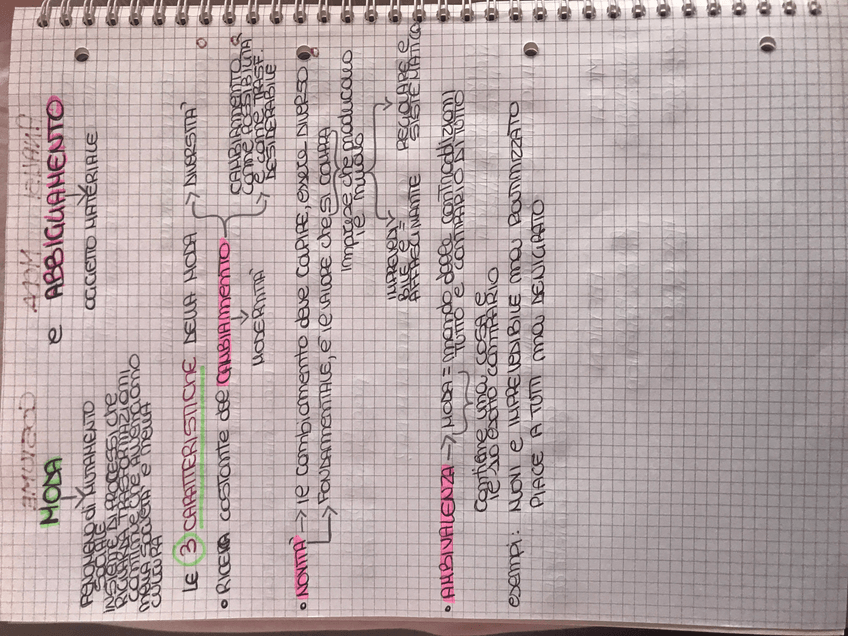 MODA e ABBIGLIAMENTO
FENOMENO di MUTAMENTO
SOCIALE
INSIEME DI PROCESSI che
RIGUARDA TRASFORMAZIONI
CONTINUE che AVVENGONO
NELLA SOCIETÀ e NELLA
CULTURA
OGGETTO MATERIALE
Le 3 CARATTERISTICHE DELLA MODA
• RICERCA COSTANTE del CAMBIAMENTO
DIVERSITÀ
CAMBIAMENTO
come POSSIBILITÀ
e come TRASF.
DESIDERABILE
MODERNITÀ
• NOVITÀ → IL cambiamento deve COLPIRE, essere DIVERSO
FONDAMENTALE, È IL VALORE che SI COMPRA
imprese che producono
IL nuovo
IMPREVEDI-
BILE E =
AFFASCINANTE
REGOLARE e
SISTEMATICO
• AMBIVALENZA → MODA = mondo delle contraddizioni
TUTTO e CONTRARIO DI TUTTO
contiene una cosa e
il suo esatto contrario
esempi: NUOVI e IMPREVEDIBILE ma ROUTINIZZATO
PIACE A TUTTI ma DENIGRATO